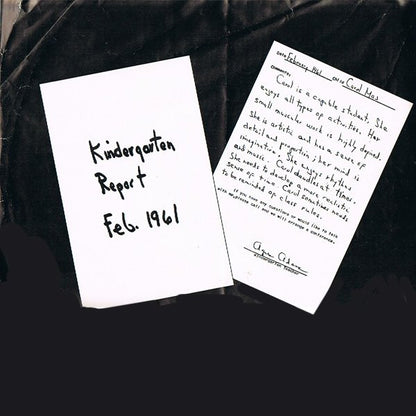 Kindergarten
Report
Feb. 1961
DATE February 1961 CHILD Carol
COMMENTS:
Carol is a capable student. She
enjoys all types of activities. Her
small muscular work is highly defined.
She is artistic and has a sense of
detail and proportion; her mind is
imaginative. She enjoys rhythms
and music. Carol dawdles at times.
She needs to develop a more realistic
sense of time. Carol sometimes needs
to be reminded of class rules.
If you have any questions or would like to talk
with me, please call and we will arrange a conference.
Kindergarten Teacher